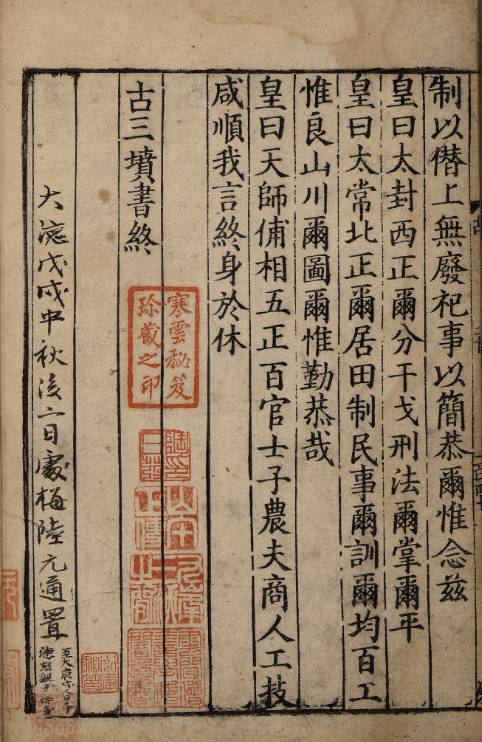 制以僭上無廢祀事以簡恭爾惟念兹
皇曰太封西正爾分干戈刑法爾掌爾平
皇曰太常北正爾居田制民事爾訓爾均百工
惟良山川爾圖爾惟勤恭哉
皇曰天師俌相五正百官士子農夫商人工技
咸順我言終身於休
古三墳書終
寒雲秘笈
珍藏之印
大德戊戌中秋後二日處梅陸元通置